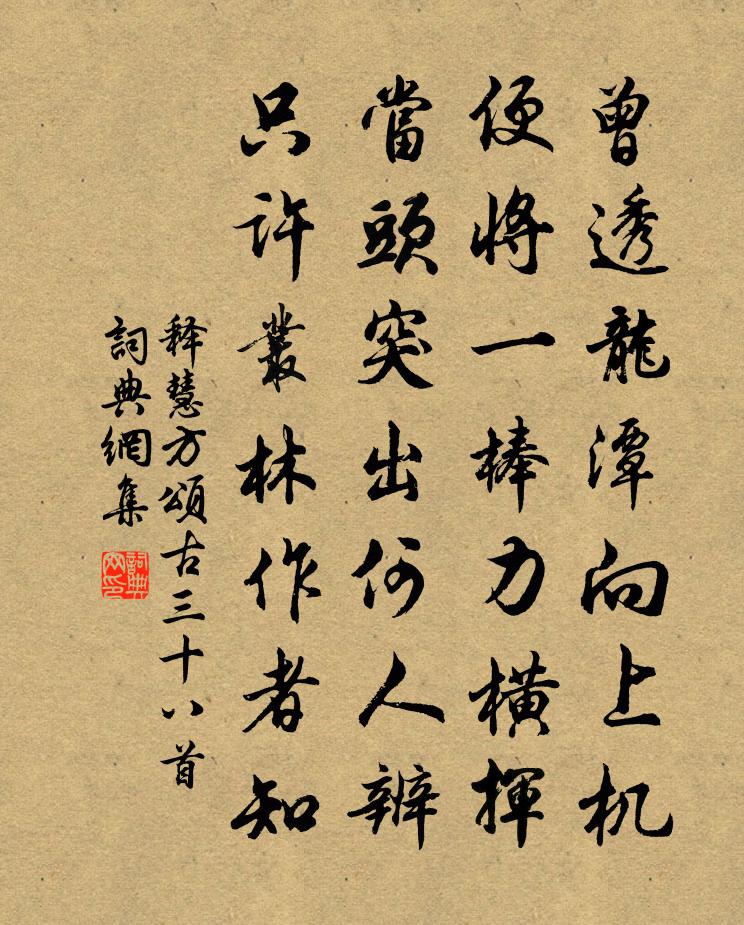 曾透龍潭向上机
便將一棒力横揮
當頭突出何人辨
只許叢林作者知
释慧方頌古三十八首
詞典網集
詞典網印